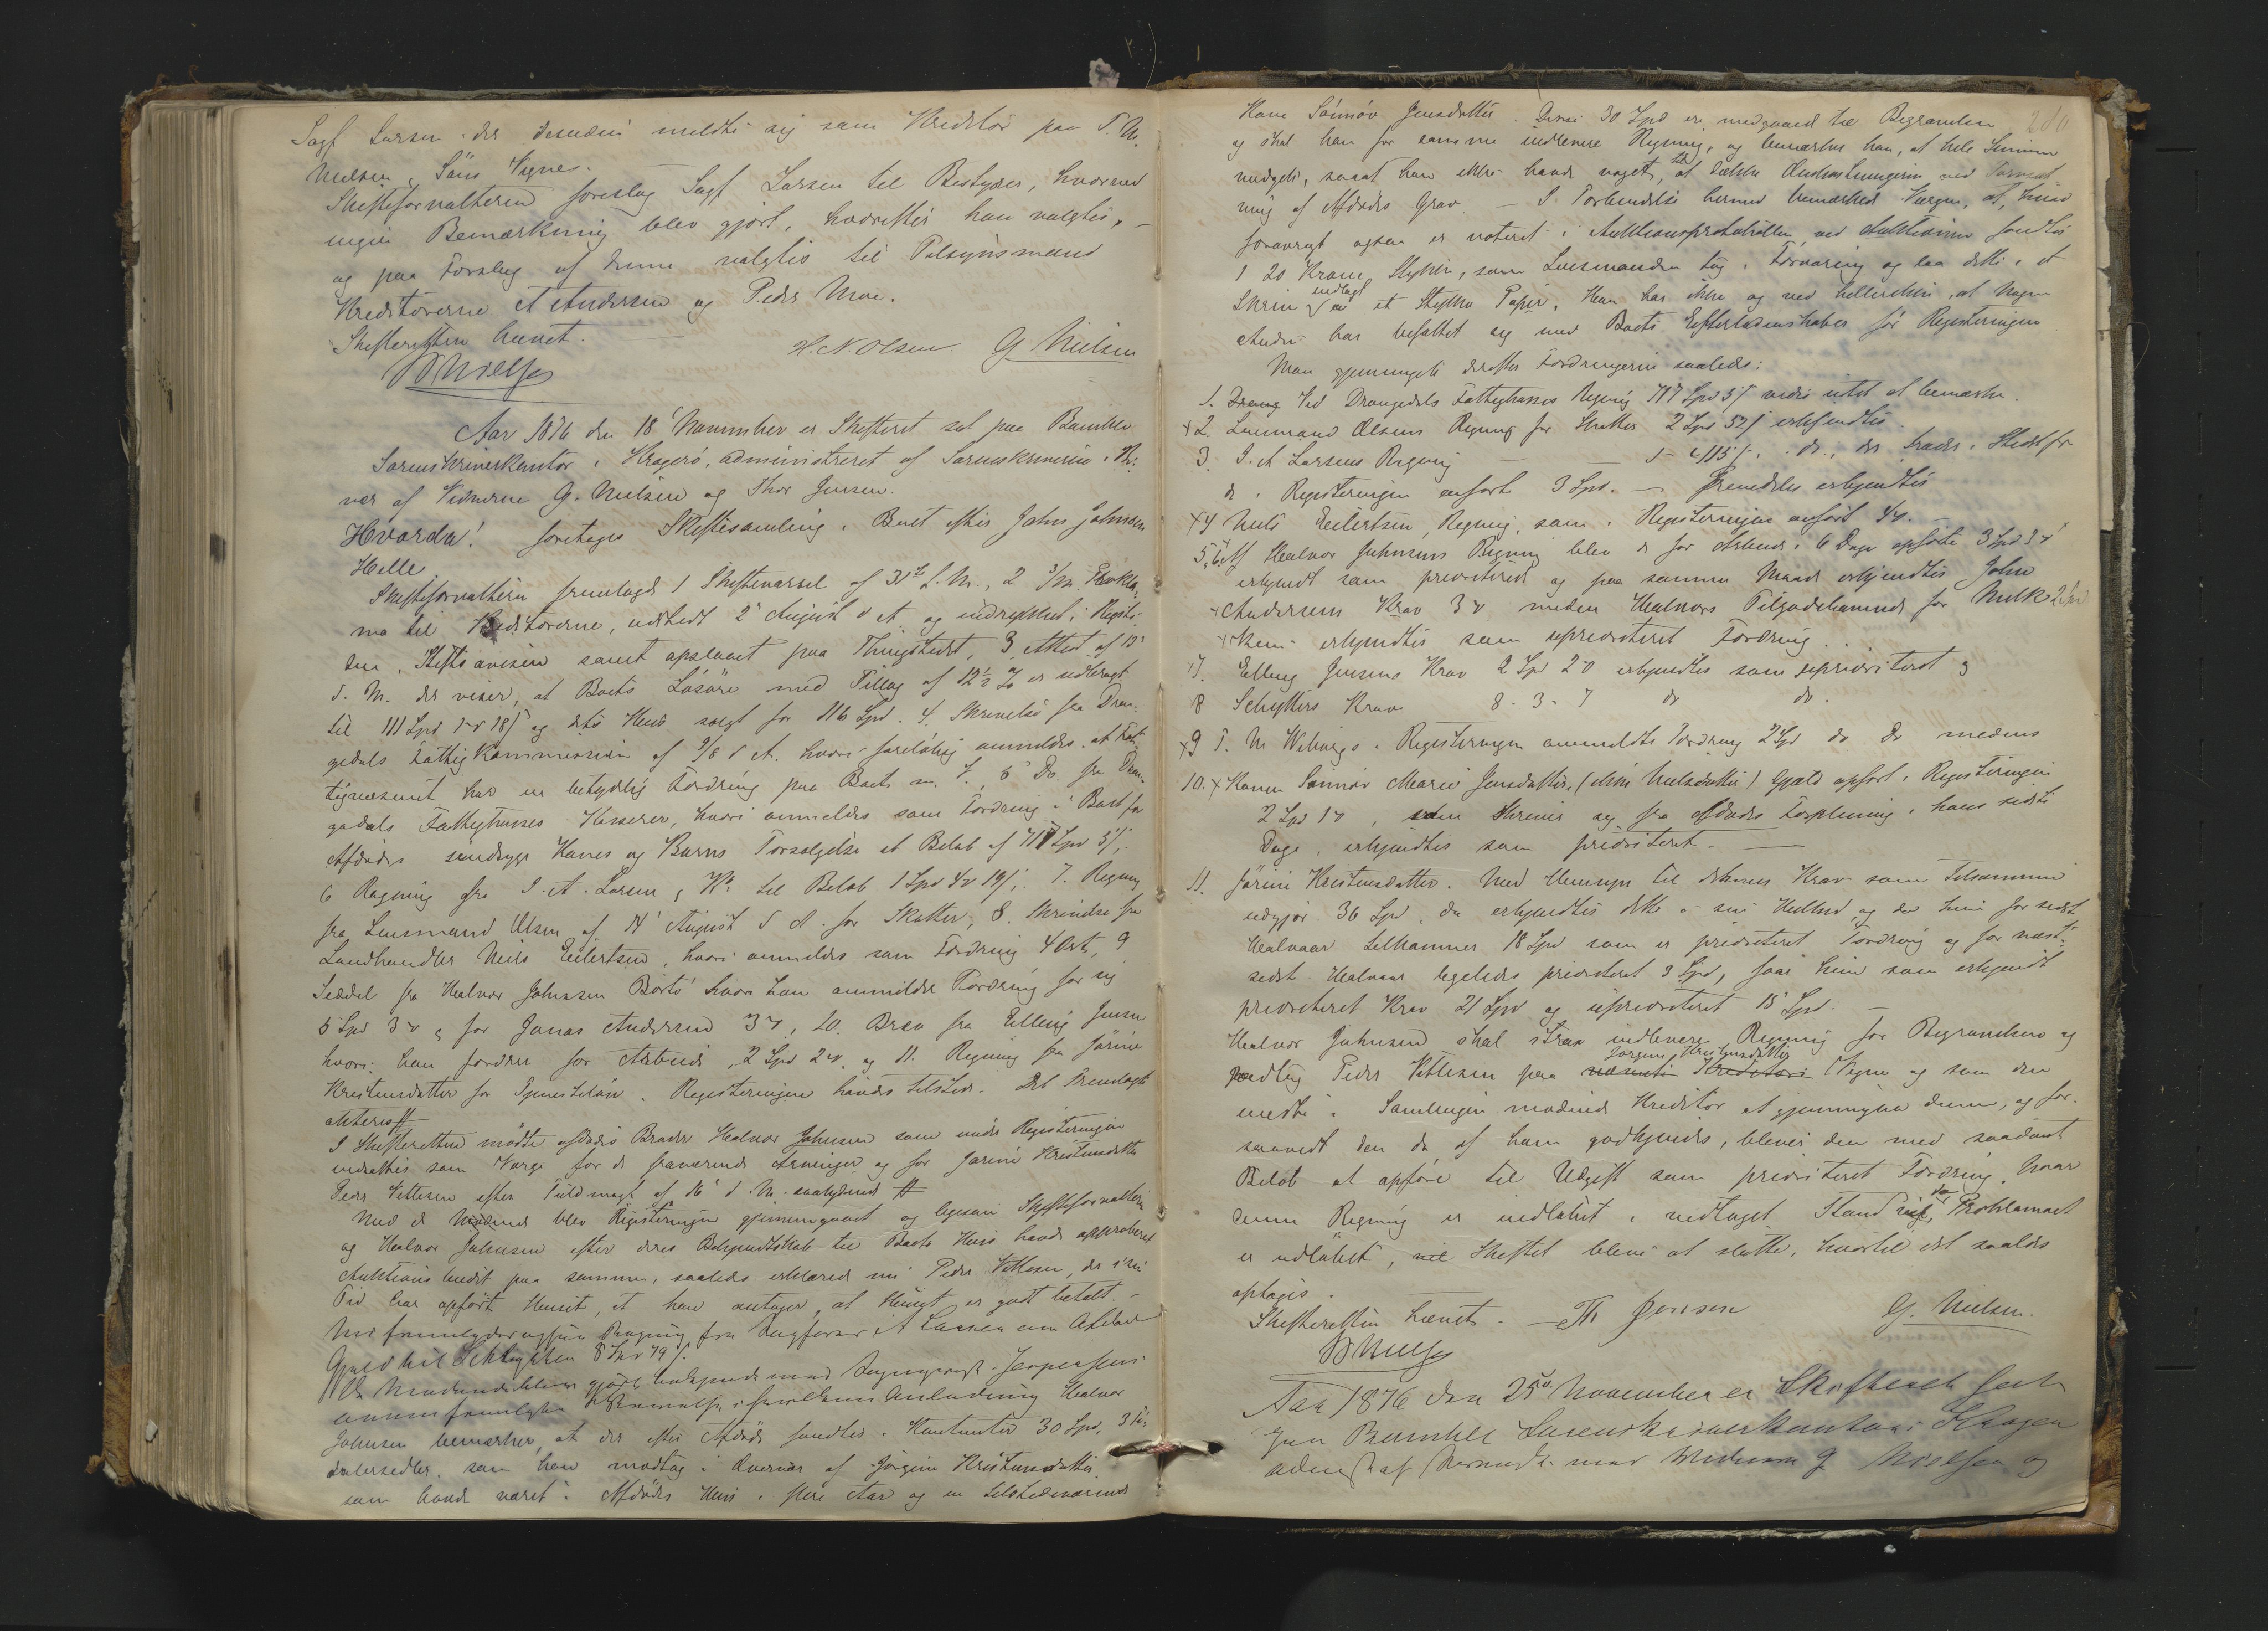 Sagf. Larsen der desuden meldte sig som Kreditor paa T. M.
Nielsen & Søns Vegne.
Skifteforvalteren foreslog Sagf. Larsen til Bestyrer, hvorved
ingen Bemærkning blev gjort, hvorefter han valgtes, –
og paa Forslag af denne valgtes til Tilsynsmænd
Kreditorerne A Andersen og Peder Moe.
Skifteretten hævet.
H. N. Olsen. G. Nielsen
Aar 1876 den 18 November er Skifteret sat paa Bamble
Sorenskriverkontor i Kragerø, administreret af Sorenskriveren i Nær-
vær af Vidnerne G. Nielsen og Thor Jensen.
Hvorda! foretoges Skiftesamling i Boet efter John Johnsen
Helle.
Skifteforvalteren fremlagde 1 Skiftevarsel af 31te f. M., 2 Prokla-
ma til Kreditorerne, udstedt 2 August d A og indrykket i Rigsti-
den, Stiftsavisen samt opslaaet paa Thingstedet, 3 Attest af 15
d. M. der viser, at Boets Løsøre med Tillæg af 12½ % er udbragt
til 111 Spd 1 18 og dets Huus solgt for 116 Spd. 4. Skrivelse fra Dran-
gedals Fattigkommission af 9/8 d A. hvori foreløbig anmeldes, at Fat-
tigvæsenet har en betydelig Fordring paa Boet m. V., 5 Do. fra Dran-
gedals Fattigkasses Kasserer, hvori anmeldes som Fordring i Boet for
Afdødes sindssyge Kones og Barns Forsørgelse et Beløb af 717 Spd 5 ;
6 Regning fra I. A. Larsen & Ko. til Beløb 1 Spd 4 19 ; 7. Regning
fra Lensmand Olsen af 14 August d A. for Skatter, 8. Skrivelse fra
Landhandler Niels Eilertsen, hvori anmeldes som Fordring 4 Ort, 9
Seddel fra Halvor Johnsen Børtø hvori han anmelder Fordring for sig
5 Spd 3 & for Jonas Andersen 3, 10. Brev fra Elling Jensen
hvori han fordrer for Arbeide 2 Spd 2 og 11. Regning fra Jørine
Kristensdatter for Tjenesteløn. Registeringen havdes tilstede. Det Fremlagte
akteres #
I Skifteretten mødte afdødes Broder Halvor Johnsen som under Registeringen
indsattes som Værge for de fraværende Arvinger og for Jørine Kristensdatter
Peder Vettesen efter Fuldmagt af 16 d. M. saalydende #
Med de Mødende blev Registeringen gjennemgaaet og ligesom Skifteforvalteren
og Halvor Johnsen efter deres Bekjendtskab til Boets Huus havde approberet
Auktionsbudet paa samme, saaledes erklærede nu Peder Vettesen, der i sin
Tid har opført Huset, at han antager, at Huset er godt betalt. –
Der fremlagdes ogsaa Regning fra Sagfører A Larsen om Afdødes
Gjæld til 8 Spd 79.
De Mødende bleve gjort bekjendt med
Johnsen bemærker, at der efter Afdøde fandtes i Kontanter 30 Spd, 3 Ti-
dalersedler, som han modtog i Overvær af Jørgine Kristensdatter,
som havde været i Afdødes Huus i flere Aar og en tilstedeværende
Kone Sønnøv Jensdatter. Disse 30 Spd er medgaaet til Begravelsen
og skal han for samme indlevere Regning, og bemærker han, at hele Summen
medgik, saaat han ikke havde noget til at dække Omkostningerne ved
ning af Afdødes Grav. – I Forbindelse hermed bemærkede Værgen, at, hvad
forøvrigt ogsaa er noteret i Auktionsprotokollen, ved Auktionen fandtes
1 20 Krone Stykke, som Lensmanden tog i Forvaring og laa dette i et
Skrin indlagt i et Stykke Papir. Han har ikke og ved hellerikke, at Nogen
Anden har befattet sig med Boets Efterladenskaber før Registeringen
Man gjennemgik derefter Fordringerne saaledes:
1. Ved Drangedals Fattigkasses Regning 717 Spd 5 vides intet at bemærke.
x 2. Lensmand Olsens Regning for Skatter 2 Spd 52 erkjendtes.
3. I. A Larsens Regning
de i Registeringen anførte 3 Spd. – Fremdeles erkjendtes
x 4 Niels Eilertsen, Regning, som i Registeringen anført 4.
5, 6. Af Halvor Johnsens Regning blev de for Arbeide i 6 Dage opførte 3 Spd
erkjendt som prioriteret og paa samme Maade erkjendtes John
Andersens Krav 3 medens Halvors Tilgodehavende for Melk 2 Spd
erkjendtes som uprioriteret Fordring.
7. Elling Jensens Krav 2 Spd 2 erkjendtes som uprioriteret og
8 Schytters Krav 8. 3. 7 do do.
x 9 T. M Wiborgs i Registeringen anmeldte Fordring 2 Spd do do medens
10. x Konen Sønnøv Marie Jensdatter, (Nielsdatter) Gjæld opført i Registeringen
2 Spd 1, som skriver sig fra Afdødes Forpleining i hans sidste
Dage, erkjendtes som prioriteret. –
11. Jørine Kristensdatter. Med Hensyn til dennes Krav som tilsammen
udgjør 36 Spd, da erkjendtes dette i sin Helhed, og da hun for sidst
Halvaar tilkommer 18 Spd som er prioriteret Fordring og for næst-
sidst Halvaar ligeledes prioriteret 3 Spd, faar hun som erkjendt
prioriteret Krav 21 Spd og uprioriteret 15 Spd. –
Halvor Johnsen skal strax indlevere Regning for Begravelsen og
vedtog Peder Vettesen paa Jørgine Kristensdatters Vegne og som den
eneste i Samlingen mødende Kreditor at gjennemgaa denne, og for-
saavidt den da af ham godkjendes, bliver den med saadant
Beløb at opføre til Udgift som prioriteret Fordring. Naar
denne Regning er indløbet i vedtaget Stand og da Proklamaet
er udløbet, vil Skiftet blive at slutte, hvortil det saaledes
optages.
Skifteretten hævet. – Th Jensen G. Nielsen.
Aar 1876 den 25de November er Skifteret sat
paa Bamble Sorenskriverkontor i Kragerø
administ. af med Vidnerne G Nielsen og